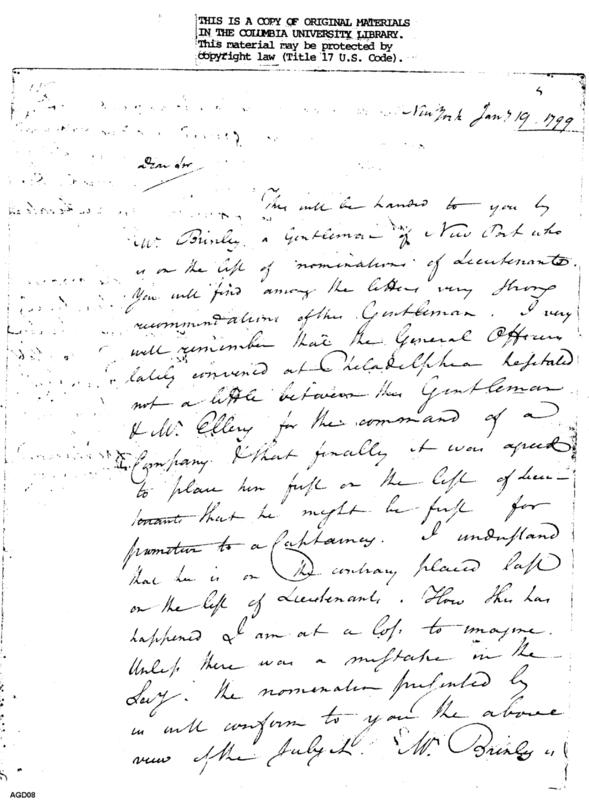 THIS IS A COPY OF ORIGINAL MATERIALS
IN THE COLUMBIA UNIVERSITY LIBRARY.
This material may be protected by
copyright law (Title 17 U.S. Code).
New York Jany 19. 1799
Dear Sir
This will be handed to you by
Mr. Brinley a Gentleman of New Port who
is on the list of nominations of Lieutenants.
You will find among the letters very strong
recommendations of this Gentleman. I very
well remember that the General Officers
lately convened at Philadelphia hesitated
not a little between this Gentleman
& Mr. Ellery for the command of a
Company & that finally it was agreed
to place him first on the list of Lieu-
tenants that he might be first for
promotion to a Captaincy. I understand
that he is on the contrary placed last
on the list of Lieutenants. How this has
happened I am at a loss to imagine.
Unless there was a mistake in the
The nomination presented by
us will conform to you the above
view of the subject. Mr. Brinley is
AGD08